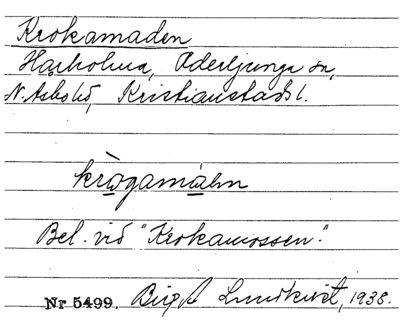 Krokamaden
Harholma, Oderljunga sn,
N. Åsbo hd, Kristianstads l.
krògamáhn
Bel. vid "Krokamossen."
Nr 5499. Birgit Lundkvist, 1938.